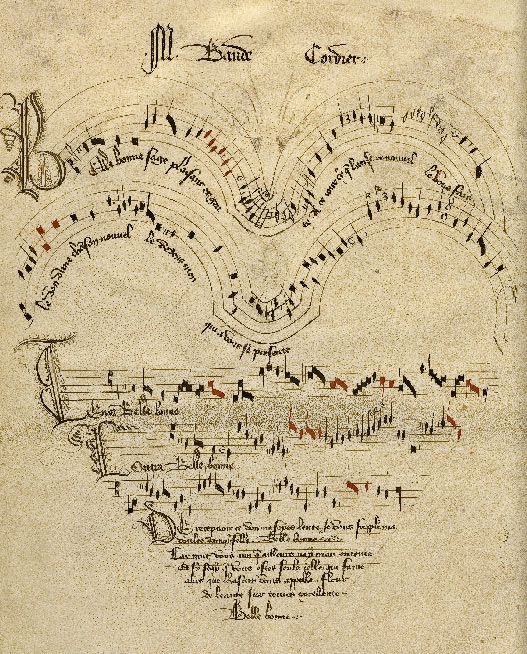 M. Baude Cordier:
Belle bonne sage plaisant et gente
ce jour cy que l'an se renouvel
Vous fais
le don d'une chanson nouvel
dedens mon
qui a vous se presente
Tenor Belle bonne
Contra Belle bonne
De recepvoir ce don ne soyes lente Je vous suppli ma
doulce damoyselle Belle bonne
Car tant vous aim qu'ailleurs n'ay mon entente
Et sy scay que vous estes seule celle qui fame
aves que chascun vous appelle Flour
de beaute sur toutes excellente
Belle bonne